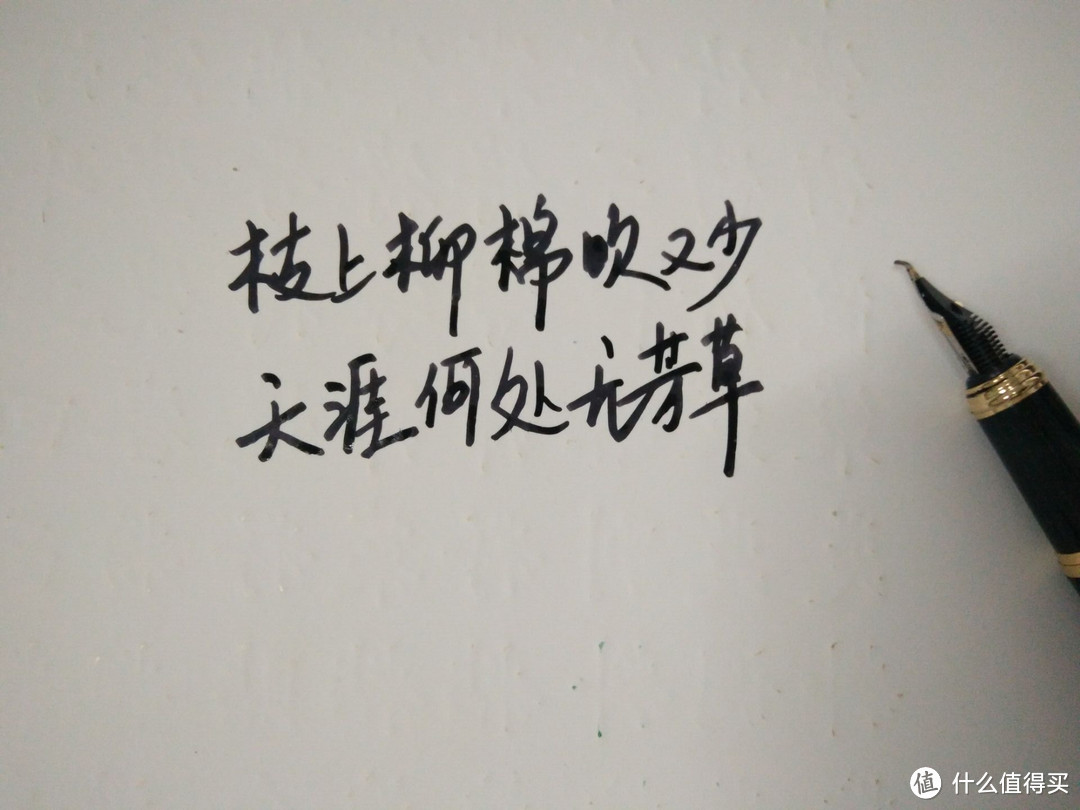 枝上柳棉吹又少
天涯何处无芳草
值 什么值得买